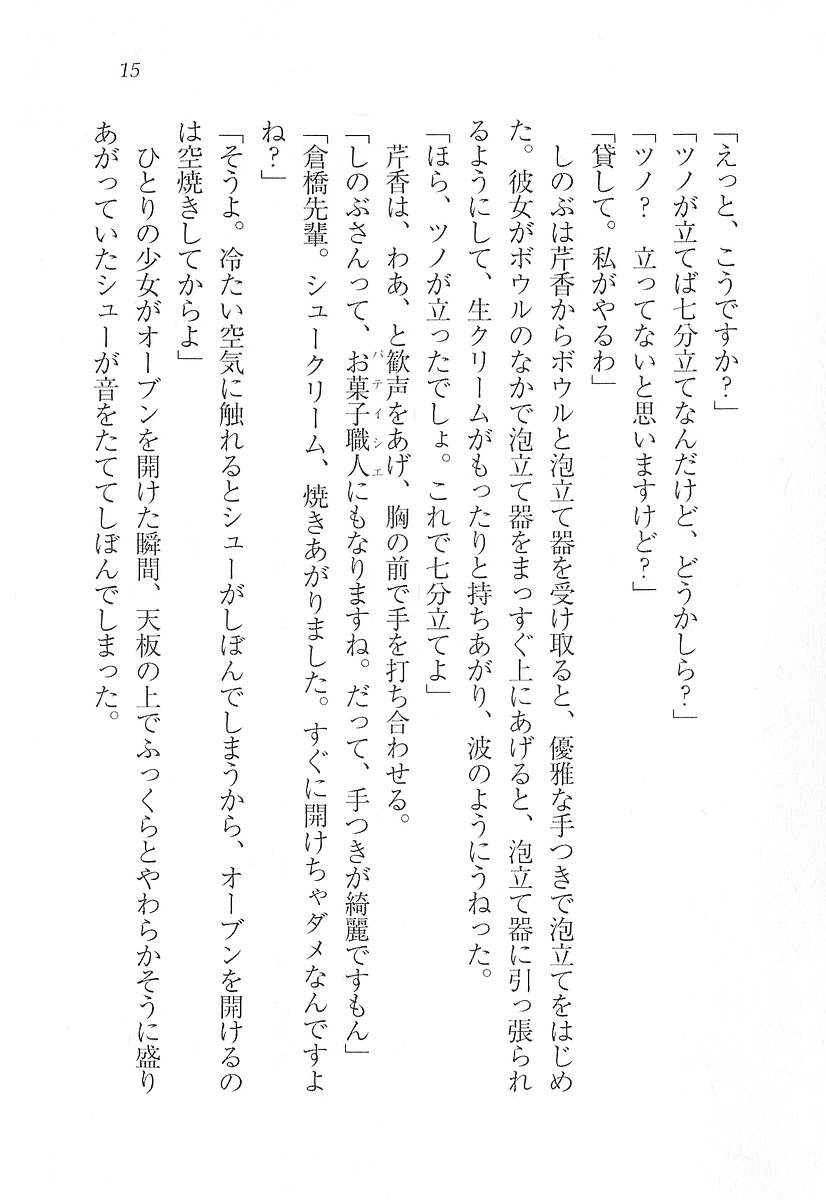 15
「えっと、こうですか?」
「ツノが立てば七分立てなんだけど、どうかしら?」
「ツノ?　立ってないと思いますけど?」
「貸して。私がやるわ」
　しのぶは芹香からボウルと泡立て器を受け取ると、優雅な手つきで泡立てをはじめ
た。彼女がボウルのなかで泡立て器をまっすぐ上にあげると、泡立て器に引っ張られ
るようにして、生クリームがもったりと持ちあがり、波のようにうねった。
「ほら、ツノが立ったでしょ。これで七分立てよ」
　芹香は、わあ、と歓声をあげ、胸の前で手を打ち合わせる。
「しのぶさんって、お菓子職人にもなりますね。だって、手つきが綺麗ですもん」
パテイシエ
「倉橋先輩。シュークリーム、焼きあがりました。すぐに開けちゃダメなんですよ
ね?」
「そうよ。冷たい空気に触れるとシューがしぼんでしまうから、オーブンを開けるの
は空焼きしてからよ」
　ひとりの少女がオーブンを開けた瞬間、天板の上でふっくらとやわらかそうに盛り
あがっていたシューが音をたててしぼんでしまった。